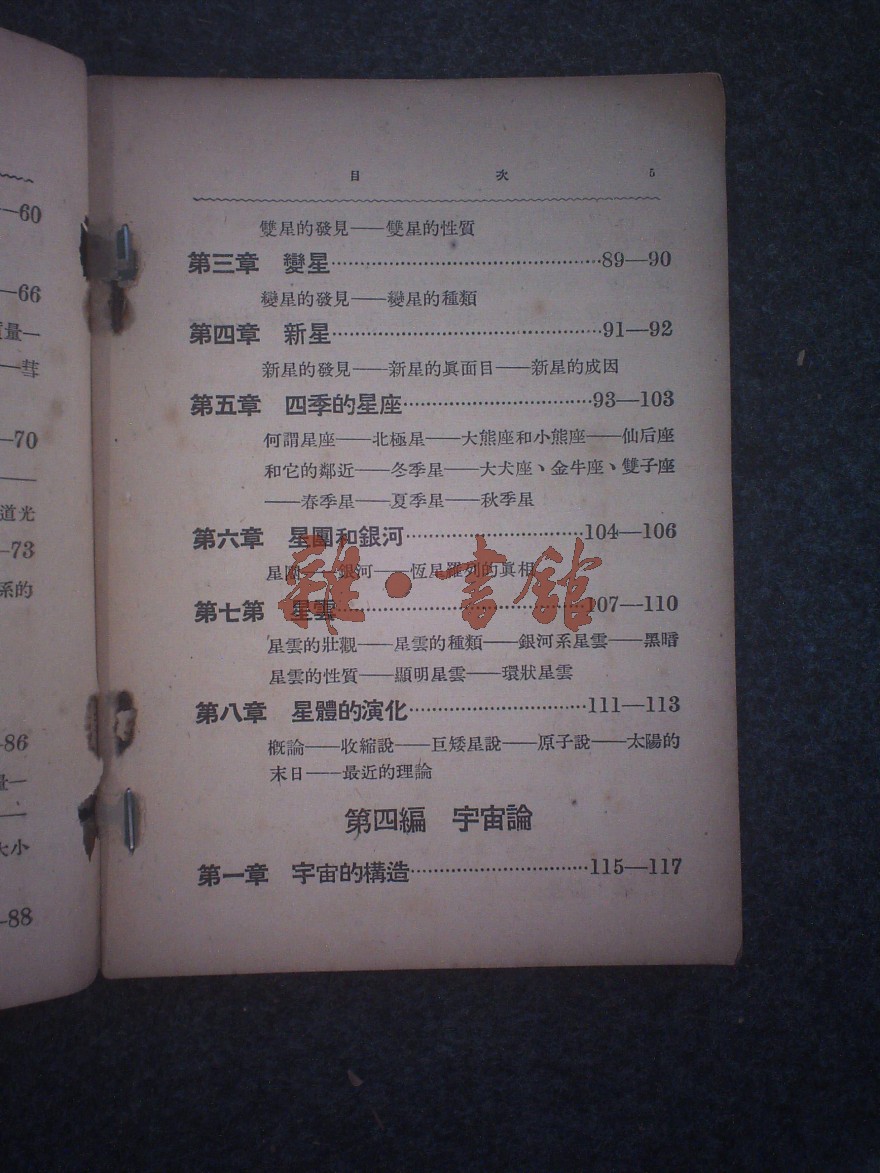 —60
—66
量—
—彗
—70
道光
—73
系的
—86
量—
大小
—88
目 次 5
雙星的發見——雙星的性質
第三章 變星……………………………………89—90
變星的發見——變星的種類
第四章 新星……………………………………91—92
新星的發見——新星的眞面目——新星的成因
第五章 四季的星座…………………………93—103
何謂星座——北極星——大熊座和小熊座——仙后座
和它的鄰近——冬季星——大犬座、金牛座、雙子座
——春季星——夏季星——秋季星
第六章 星團和銀河………………………104—106
星團——銀河——恆星羅列的眞相
第七第 星雲…………………………………107—110
星雲的壯觀——星雲的種類——銀河系星雲——黑暗
星雲的性質——顯明星雲——環狀星雲
第八章 星體的演化………………………111—113
概論——收縮說——巨矮星說——原子說——太陽的
末日——最近的理論
第四編 宇宙論
第一章 宇宙的構造………………………115—117
雜·書館